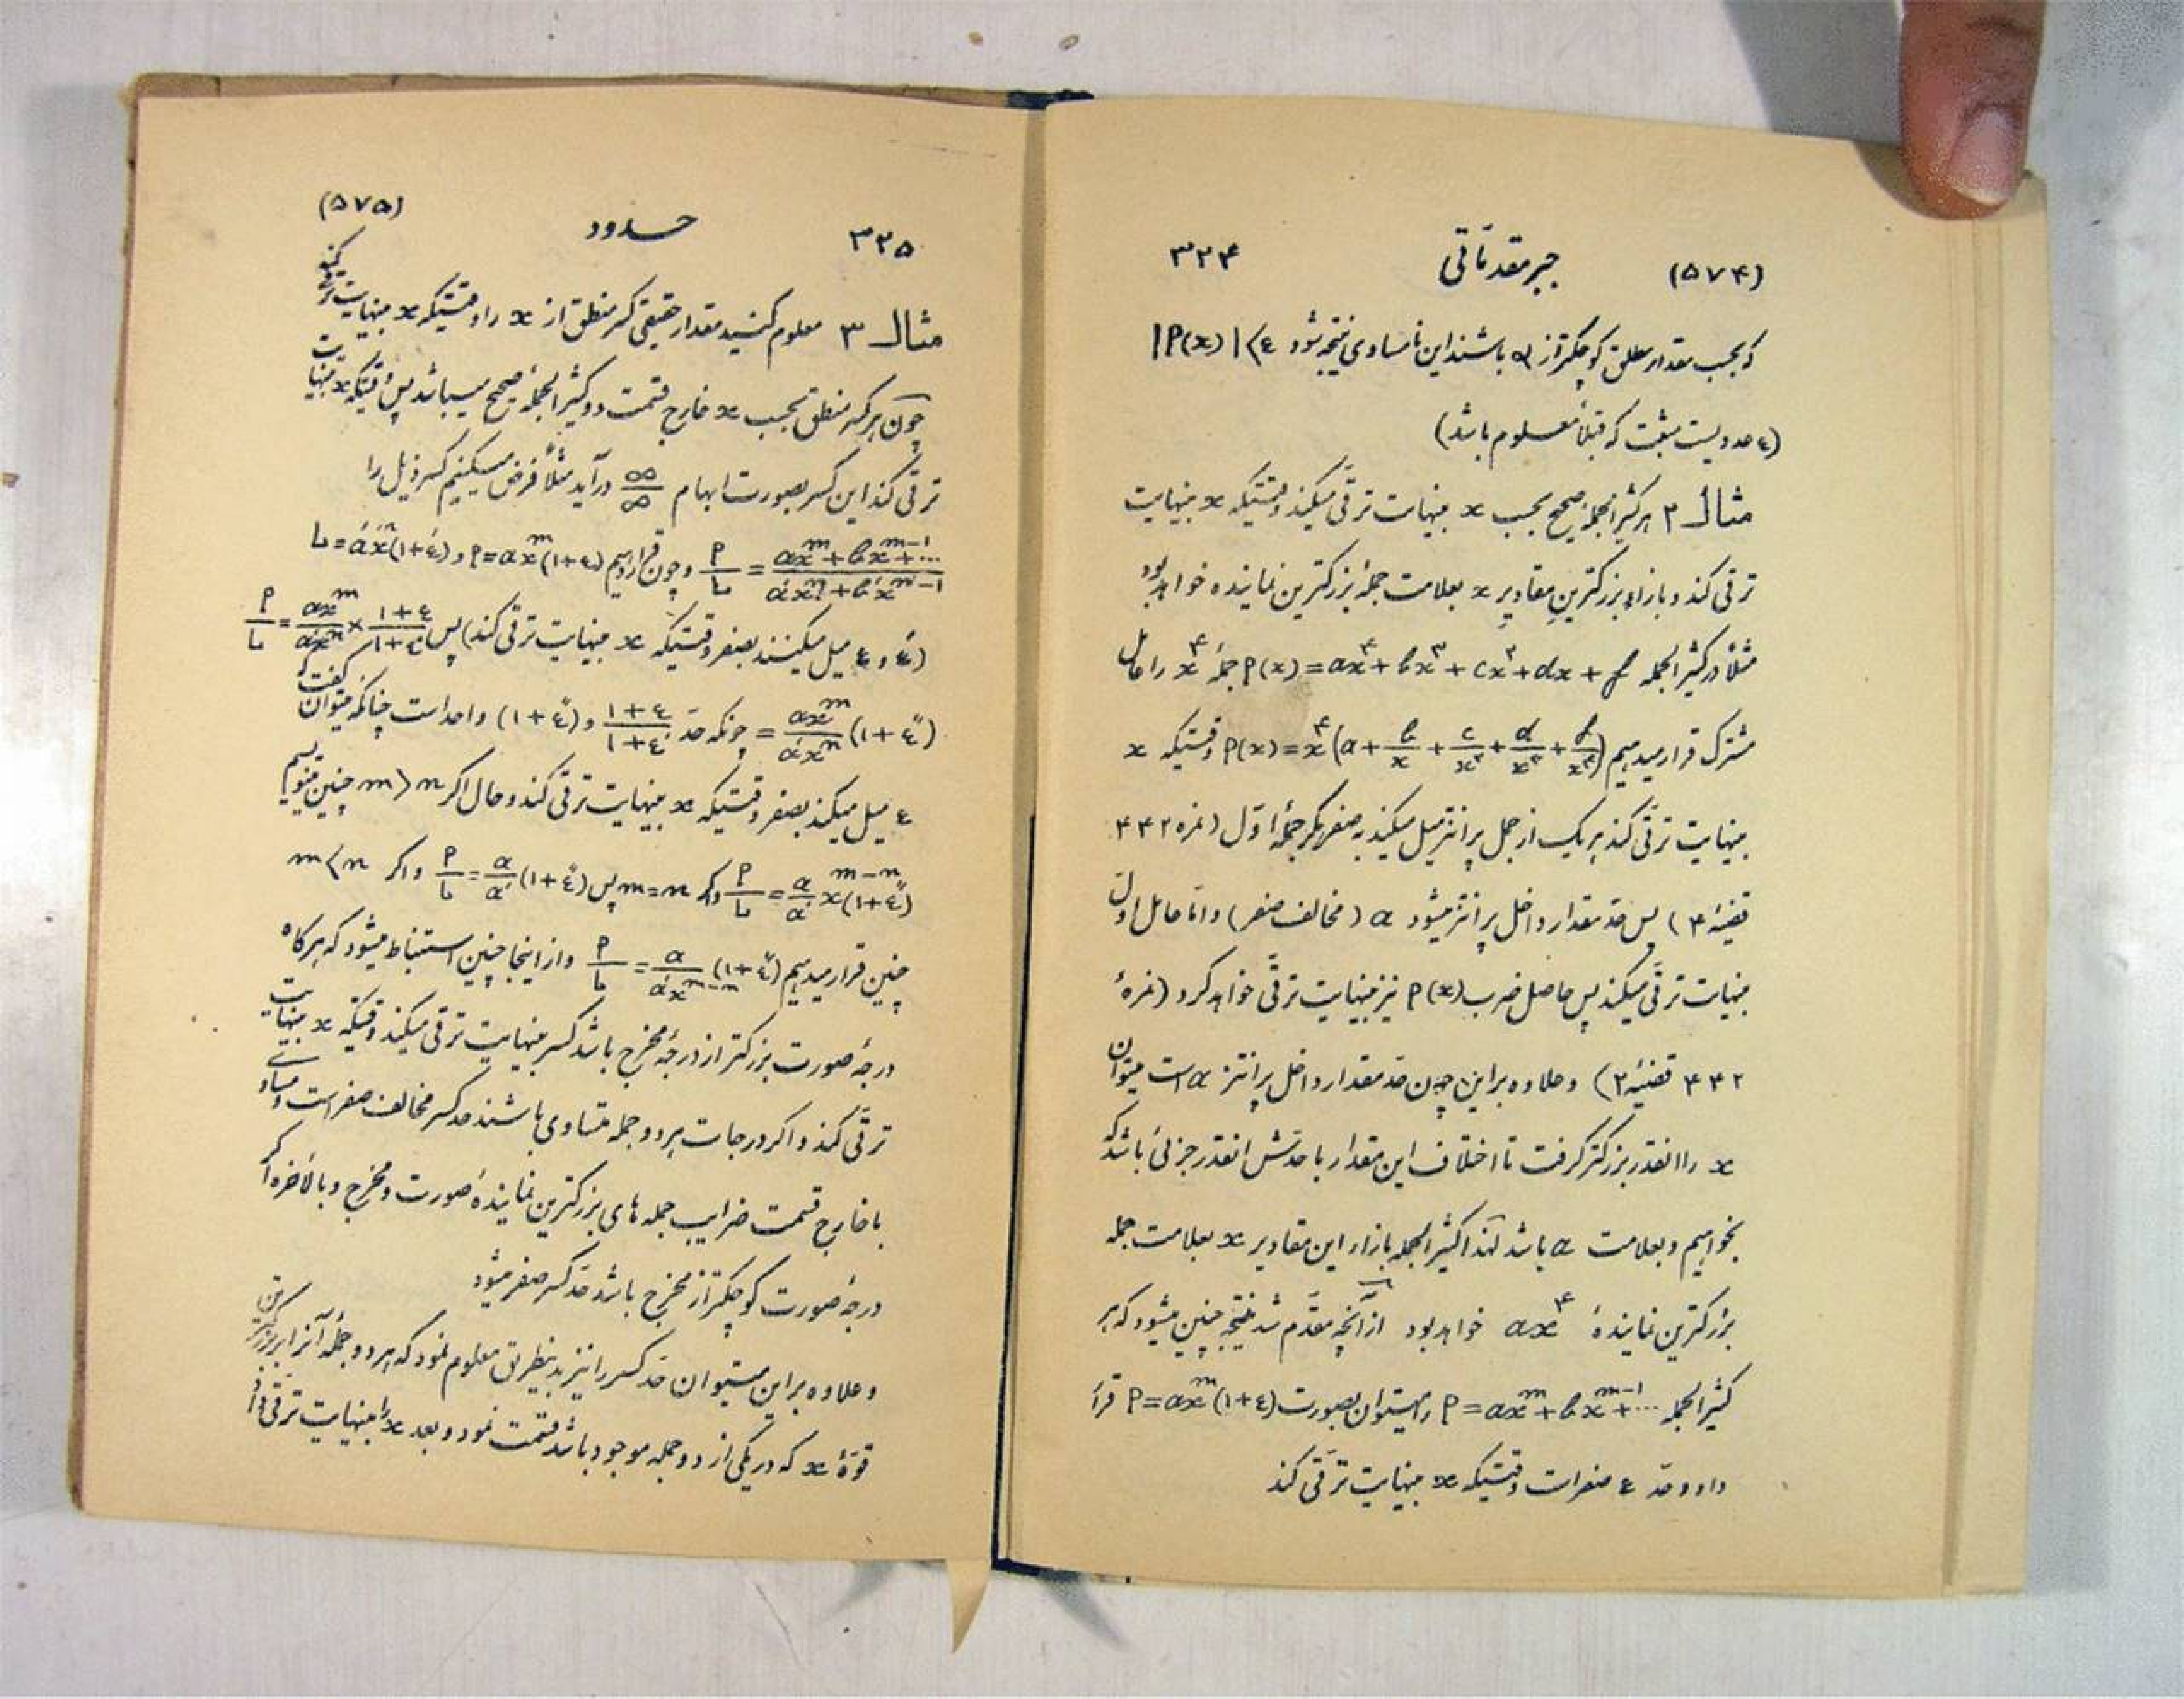 (۵۷۴) جبر مقدماتی ۳۲۴
که بحسب مقدار مطلق کوچکتر از α باشند این نامساوی نتیجه میشود |P(x)|<ε
(ε عددیست مثبت که قبلاً معلوم باشد)
مثال ۲ هر کثیرالجملهٔ صحیح بحسب x بینهایت ترقی میکند وقتیکه x بینهایت
ترقی کند و بازاء بزرکترین مقادیر x بعلامت جملهٔ بزرکترین نماینده خواهد بود
مثلاً در کثیرالجمله P(x)=ax⁴+bx³+cx²+dx+f جملهٔ x⁴ را عامل
مشترک قرار میدهیم P(x)=x⁴(a+b/x+c/x²+d/x³+f/x⁴) وقتیکه x
بینهایت ترقی کند هر یک از جمل پرانتز میل میکند به صفر مکر جملهٔ اول (نمره ۴۴۲
قضیهٔ ۴) پس حد مقدار داخل پرانتز میشود a (مخالف صفر) و اما عامل اول
بینهایت ترقی میکند پس حاصل ضرب P(x) نیز بینهایت ترقی خواهد کرد (نمرهٔ
۴۴۲ قضیهٔ ۲) و علاوه بر این چون حد مقدار داخل پرانتز a است میتوان
x را انقدر بزرکتر کرفت تا اختلاف این مقدار با حدش انقدر جزئی باشد که
بخواهیم و بعلامت a باشد لهذا کثیرالجمله بازاء این مقادیر x بعلامت جمله
بزرکترین نمایندهٔ ax⁴ خواهد بود از آنچه مقدم شد نتیجه چنین میشود که هر
کثیرالجمله P=axᵐ+bxᵐ⁻¹+... را میتوان بصورت P=axᵐ(1+ε) قرار
داد و حد ε صفر است وقتیکه x بینهایت ترقی کند
۳۲۵ حدود (۵۷۵)
مثال ۳ معلوم کنید مقدار حقیقی کسر منطق از x را وقتیکه x بینهایت ترقی کند
چون هر کسر منطق بحسب x خارج قسمت دو کثیرالجملهٔ صحیح میباشد پس وقتیکه x بینهایت
ترقی کند این کسر بصورت ابهام ∞/∞ درآید مثلاً فرض میکنیم کسر ذیل را
P/L=(axᵐ+bxᵐ⁻¹+...)/(a'xⁿ+b'xⁿ⁻¹) و چون قرار دهیم P=axᵐ(1+ε) و L=a'xⁿ(1+ε')
(ε' و ε میل میکنند بصفر وقتیکه x بینهایت ترقی کند) پس P/L=axᵐ/a'xⁿ×(1+ε)/(1+ε')
=axᵐ/a'xⁿ(1+ε") چونکه حد (1+ε)/(1+ε') و (1+ε") واحد است چنانکه میتوان کفت که
ε میل میکند بصفر وقتیکه x بینهایت ترقی کند و حال اکر m>n چنین مینویسیم
P/L=a/a' xᵐ⁻ⁿ(1+ε") و اکر m=n پس P/L=a/a'(1+ε") و اکر m<n
چنین قرار میدهیم P/L=a/a'xⁿ⁻ᵐ(1+ε") و از اینجا چنین استنباط میشود که هرکاه
درجهٔ صورت بزرکتر از درجهٔ مخرج باشد کسر بینهایت ترقی میکند وقتیکه x بینهایت
ترقی کند و اکر درجات هر دو جمله متساوی باشند حد کسر مخالف صفر است و مساوی
با خارج قسمت ضرایب جمله های بزرکترین نمایندهٔ صورت و مخرج و بالاخره اکر
درجهٔ صورت کوچکتر از مخرج باشد حد کسر صفر میشود
و علاوه بر این میتوان حد کسر را نیز بدینطریق معلوم نمود که هر دو جملهٔ آنرا بر بزرکترین
قوهٔ x که در یکی از دو جمله موجود باشد قسمت نمود و بعد x را بینهایت ترقی داد